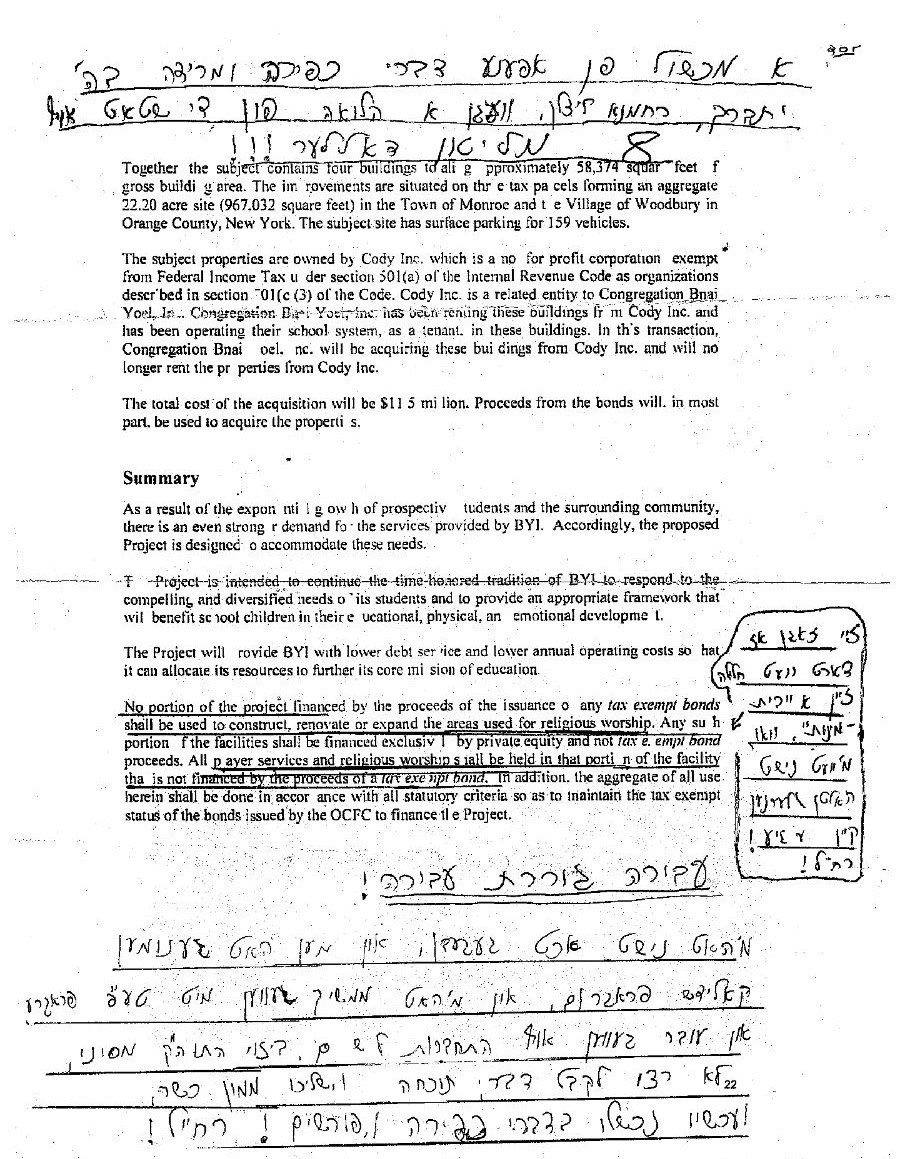 א מכשול פון אפענע דברי כפירה ומרידה בה'
יתברך, רחמנא ליצלן, וועגן א הלואה פון די שטאט אויף
8 מליאן דאללער !!!
Together the subject contains four buildings to ali g pproximately 58,374 squar feet f
gross buildi g area. The im rovements are situated on thr e tax pa cels forming an aggregate
22.20 acre site (967.032 square feet) in the Town of Monroe and t e Village of Woodbury in
Orange County, New York. The subject site has surface parking for 159 vehicles.
The subject properties are owned by Cody Inc. which is a no for profit corporation exempt
from Federal Income Tax u der section 501(a) of the Internal Revenue Code as organizations
described in section 01(c (3) of the Code. Cody Inc. is a related entity to Congregation Bnai
Yoel, In . Congregation Bnai Yoel, Inc. has been renting these buildings fr m Cody Inc. and
has been operating their school system, as a tenant. in these buildings. In th's transaction,
Congregation Bnai oel. nc. will be acquiring these bui dings from Cody Inc. and will no
longer rent the pr perties from Cody Inc.
The total cost of the acquisition will be $11 5 mi lion. Proceeds from the bonds will. in most
part. be used to acquire the properti s.
Summary
As a result of the expon nti l g ow h of prospectiv tudents and the surrounding community,
there is an even strong r demand fo the services provided by BYI. Accordingly, the proposed
Project is designed o accommodate these needs.
T Project is intended to continue the time-honored tradition of BYI to respond to the
compelling and diversified needs o its students and to provide an appropriate framework that
wil benefit sc ool children in their e ucational, physical, an emotional developme t.
The Project will rovide BYI with lower debt ser ice and lower annual operating costs so hat
it can allocate its resources to further its core mi sion of education.
No portion of the project financed by the proceeds of the issuance o any tax exempt bonds
shall be used to construct, renovate or expand the areas used for religious worship. Any su h
portion f the facilities shall be financed exclusiv l by private equity and not tax e. empt bond
proceeds. All p ayer services and religious worship s all be held in that porti n of the facility
tha is not financed by the proceeds of a tax exe npt bond. In addition. the aggregate of all use
herein shall be done in accor ance with all statutory criteria so as to maintain the tax exempt
status of the bonds issued by the OCFC to finance tl e Project.
זיי זאגן אז
דארט וועט חלילה
זיין א "בית
מינות", וואו
מ'וועט נישט
האלטן לערנען
קיין !
רח"ל!
עבירה גוררת עבירה!
מ'האט נישט ארט, און מען האט גענומען
קאלידזש פראגראם, און מ'האט ממשיך געווען מיט
און עובר געווען אויף התחברות, ביזוי התוה"ק מסיני,
22 לא רצו לקבל דברי תוכחה ממון כשר,
ועכשיו נכשלו בדברי כפירה! רח"ל!